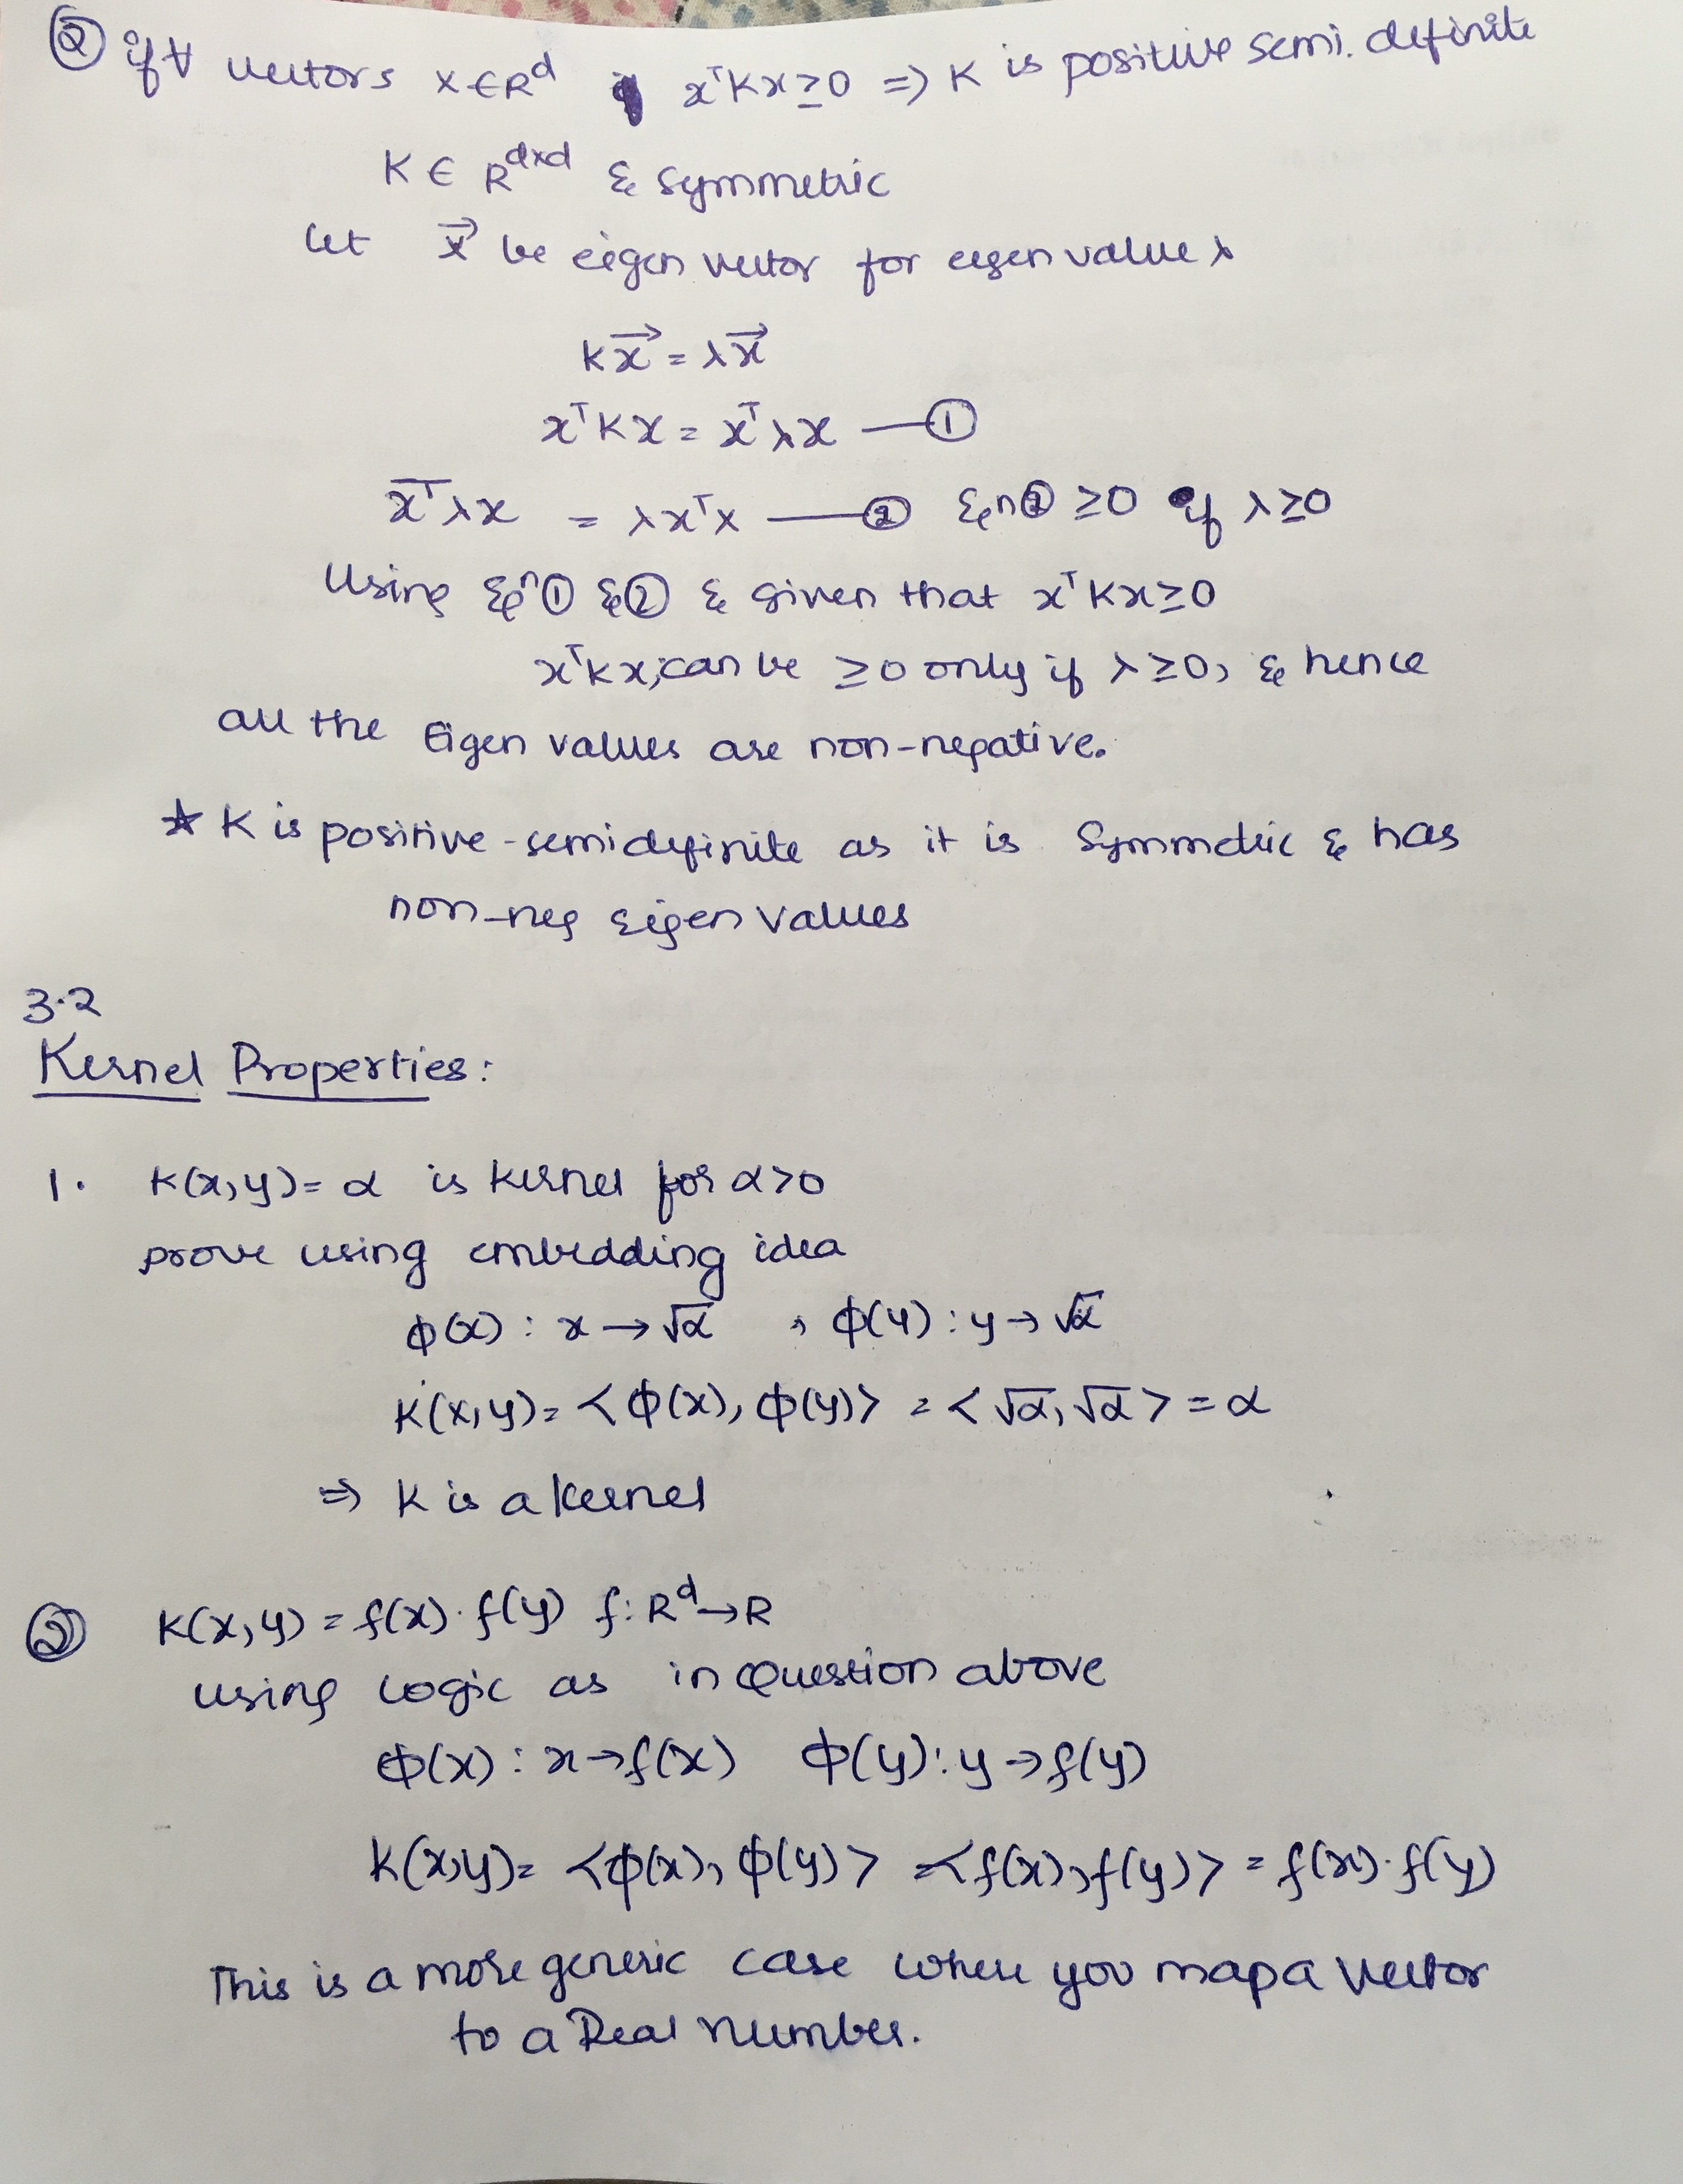 ② if ∀ vectors x ∈ R^d x^T K x ≥ 0 ⇒ K is positive semi. definite
K ∈ R^{d×d} & symmetric
Let x⃗ be eigen vector for eigen value λ
K x⃗ = λ x⃗
x^T K x = x^T λ x — ①
x^T λ x = λ x^T x — ② Eqn ② ≥ 0 if λ ≥ 0
Using Eqn ① & ② & given that x^T K x ≥ 0
x^T K x, can be ≥ 0 only if λ ≥ 0, & hence
all the Eigen values are non-negative.
★ K is positive-semidefinite as it is Symmetric & has
non-neg Eigen values
3.2
Kernel Properties:
1. K(x,y) = α is kernel for α > 0
prove using embedding idea
ϕ(x) : x → √α , ϕ(y) : y → √α
K(x,y) = <ϕ(x), ϕ(y)> = <√α, √α> = α
⇒ K is a kernel
② K(x,y) = f(x) · f(y) f: R^d → R
using logic as in Question above
ϕ(x) : x → f(x) ϕ(y) : y → f(y)
K(x,y) = <ϕ(x), ϕ(y)> = <f(x), f(y)> = f(x) · f(y)
This is a more generic case where you map a vector
to a Real number.